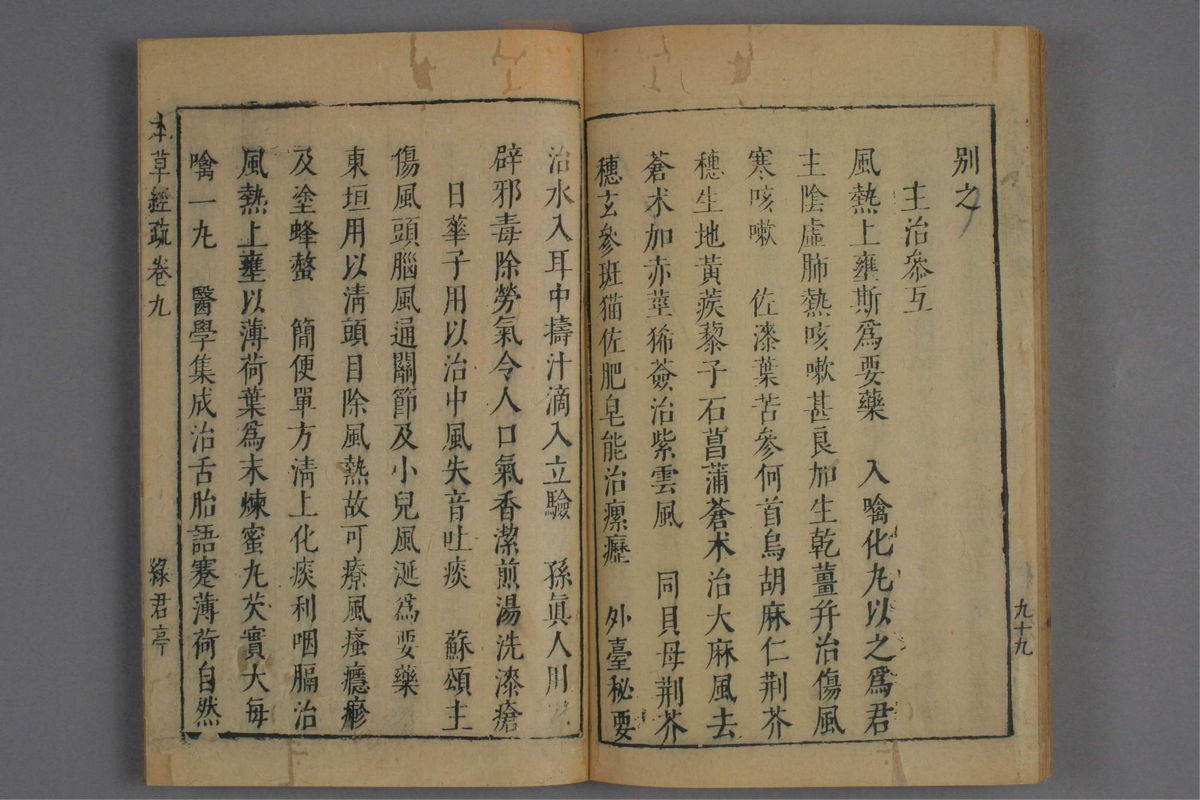 九十九
别之
主治參互
風熱上壅斯爲要藥　入噙化丸以之爲君
主陰虛肺熱咳嗽甚良加生乾薑幷治傷風
寒咳嗽　佐漆葉苦參何首烏胡麻仁荆芥
穗生地黃蒺藜子石菖蒲蒼术治大麻風去
蒼术加赤莖狶薟治紫雲風　同貝母荆芥
穗玄參斑猫佐肥皂能治瘰癧　外臺秘要
治水入耳中擣汁滴入立驗　孫眞人用
辟邪毒除勞氣令人口氣香潔煎湯洗漆瘡
日華子用以治中風失音吐痰　蘇頌主
傷風頭腦風通關節及小兒風涎爲要藥
東垣用以淸頭目除風熱故可療風瘙癮疹
及塗蜂螫　簡便單方淸上化痰利咽膈治
風熱上壅以薄荷葉爲末煉蜜丸芡實大每
噙一丸　醫學集成治舌胎語蹇薄荷自然
本草經疏卷九　綠君亭